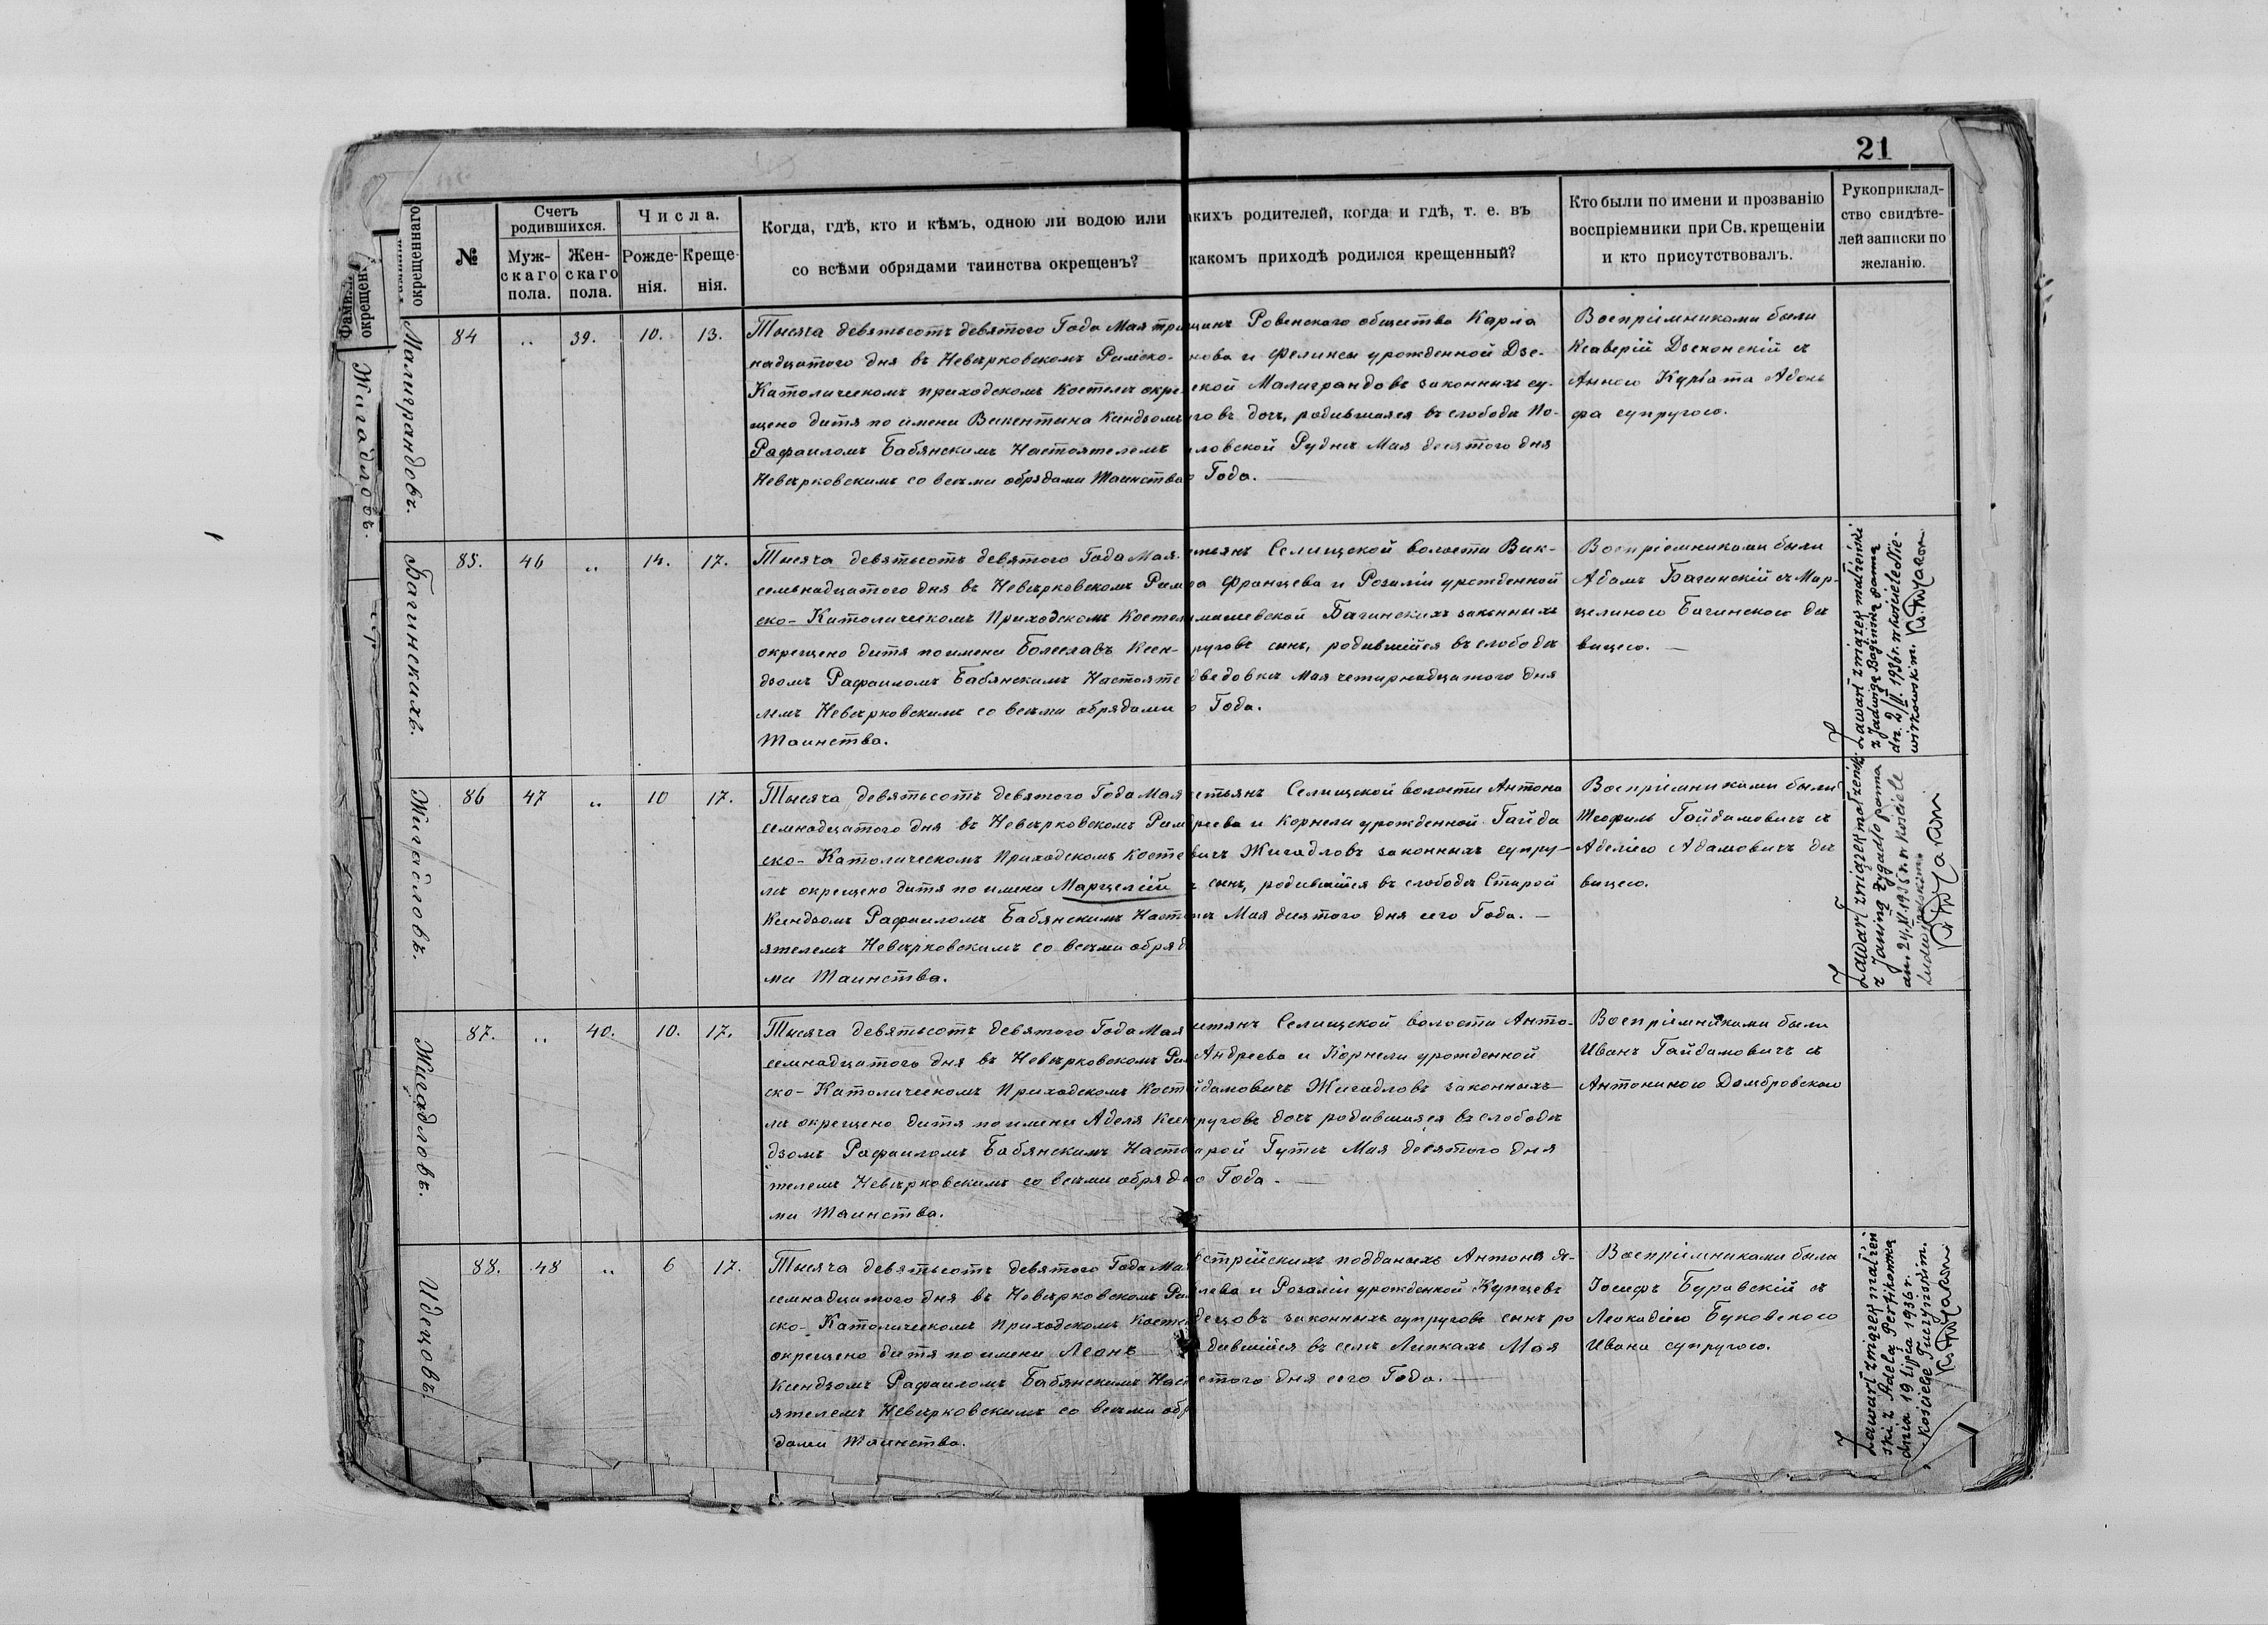 21
Фамилія окрещен
Жигадловъ.
окрещеннаго
№
Счетъ родившихся.
Муж-
скаго
пола.
Жен-
скаго
пола.
Числа.
Рожде-
нія.
Креще-
нія.
Когда, гдѣ, кто и кѣмъ, одною ли водою или
со всѣми обрядами таинства окрещенъ?
акихъ родителей, когда и гдѣ, т. е. въ
какомъ приходѣ родился крещенный?
Кто были по имени и прозванію
воспріемники при Св. крещеніи
и кто присутствовалъ.
Рукоприклад-
ство свидѣте-
лей записки по
желанію.
Малиграндовъ.
84 „ 39. 10. 13.
Тысяча девятьсотъ девятого Года Мая три
надцатого дня въ Невѣрковскомъ Римско-
Католическомъ приходскомъ Костелѣ окре-
щено дитя по имени Викентина Ксендзомъ
Рафаиломъ Бабянскимъ Настоятелемъ
Невѣрковскимъ со всѣми обрядами Таинства
щанъ Ровенского общества Карла
нова и Феликсы урожденной Дзе-
ской Малиграндовъ законныхъ су-
говъ дочь, родившаяся въ слободѣ По-
ловской Руднѣ Мая десятого дня
о Года.
Воспріемниками были
Ксаверій Дзеконскій съ
Анною Курьята Адоль
фа супругою.
Багинскихъ.
85. 46 „ 14. 17.
Тысяча девятьсотъ девятого Года Мая
семьнадцатого дня въ Невѣрковскомъ Рим
ско-Католическомъ Приходскомъ Костел
окрещено дитя по имени Болеславъ Ксен-
дзомъ Рафаиломъ Бабянскимъ Настояте
лемъ Невѣрковскимъ со всѣми обрядами
Таинства.
стьянъ Селищской волости Вик-
ра Францева и Розаліи урожденной
машевской Багинскихъ законныхъ
руговъ сынъ, родившійся въ слободѣ
дведовкѣ Мая четырнадцатого дня
о Года.
Воспріемниками были
Адамъ Багинскій съ Мар-
целиною Багинскою дѣ
вицею.
Zawarł związek małżeński
z Jadwigą Bagińską panną
dn. 2/II. 1936 r. w kościele Nie-
wirkowskim.
Жигадловъ.
86 47 „ 10 17.
Тысяча девятьсотъ девятого Года Мая
семнадцатого дня въ Невѣрковскомъ Рим
ско-Католическомъ Приходскомъ Косте
лѣ окрещено дитя по имени Марцелій
Ксендзомъ Рафаиломъ Бабянскимъ Насто
ятелемъ Невѣрковскимъ со всѣми обряд
ми Таинства.
стьянъ Селищской волости Антона
дреева и Корнели урожденной Гайда
вичъ Жигадловъ законныхъ супру-
ъ сынъ, родившійся въ слободѣ Старой
тѣ Мая десятого дня сего Года.
Воспріемниками были
Теофиль Гайдамовичъ съ
Аделіею Адамовичъ дѣ
вицею.
Zawarł związek małżeński
z Janiną Żygadło panna
dn. 24.XI.1935 r. w kościele
Ludwipolskim.
Жигадловъ.
87. „ 40. 10. 17.
Тысяча девятьсотъ девятого Года Мая
семнадцатого дня въ Невѣрковскомъ Рим
ско-Католическомъ Приходскомъ Косте
лѣ окрещено дитя по имени Аделя Ксен
дзомъ Рафаиломъ Бабянскимъ Насто
телемъ Невѣрковскимъ со всѣми обряд
ми Таинства.
стьянъ Селищской волости Анто-
Андреева и Корнели урожденной
йдамовичъ Жигадловъ законныхъ
руговъ дочь родившаяся въ слободѣ
арой Гутѣ Мая десятого дня
о Года.
Воспріемниками были
Иванъ Гайдамовичъ съ
Антониною Домбровскою
Идецовъ.
88. 48 „ 6 17.
Тысяча девятьсотъ девятого Года Мая
семнадцатого дня въ Невѣрковскомъ Рим
ско-Католическомъ приходскомъ Косте
окрещено дитя по имени Леонъ
Ксендзомъ Рафаиломъ Бабянскимъ Наст
ятелемъ Невѣрковскимъ со всѣми обр
дами Таинства.
стрійскихъ подданыхъ Антона Я-
лева и Розаліи урожденной Купцевъ
децовъ законныхъ супруговъ сынъ ро
дившійся въ селѣ Липкахъ Мая
стого дня сего Года.
Воспріемниками были
Іосифъ Буравскій съ
Леокадіею Буковскою
Ивана супругою.
Zawarł związek małżeń
ski z Adelą Perzikowną
dnia 19 lipca 1936 r.
w Kościele Tuczyńskim.